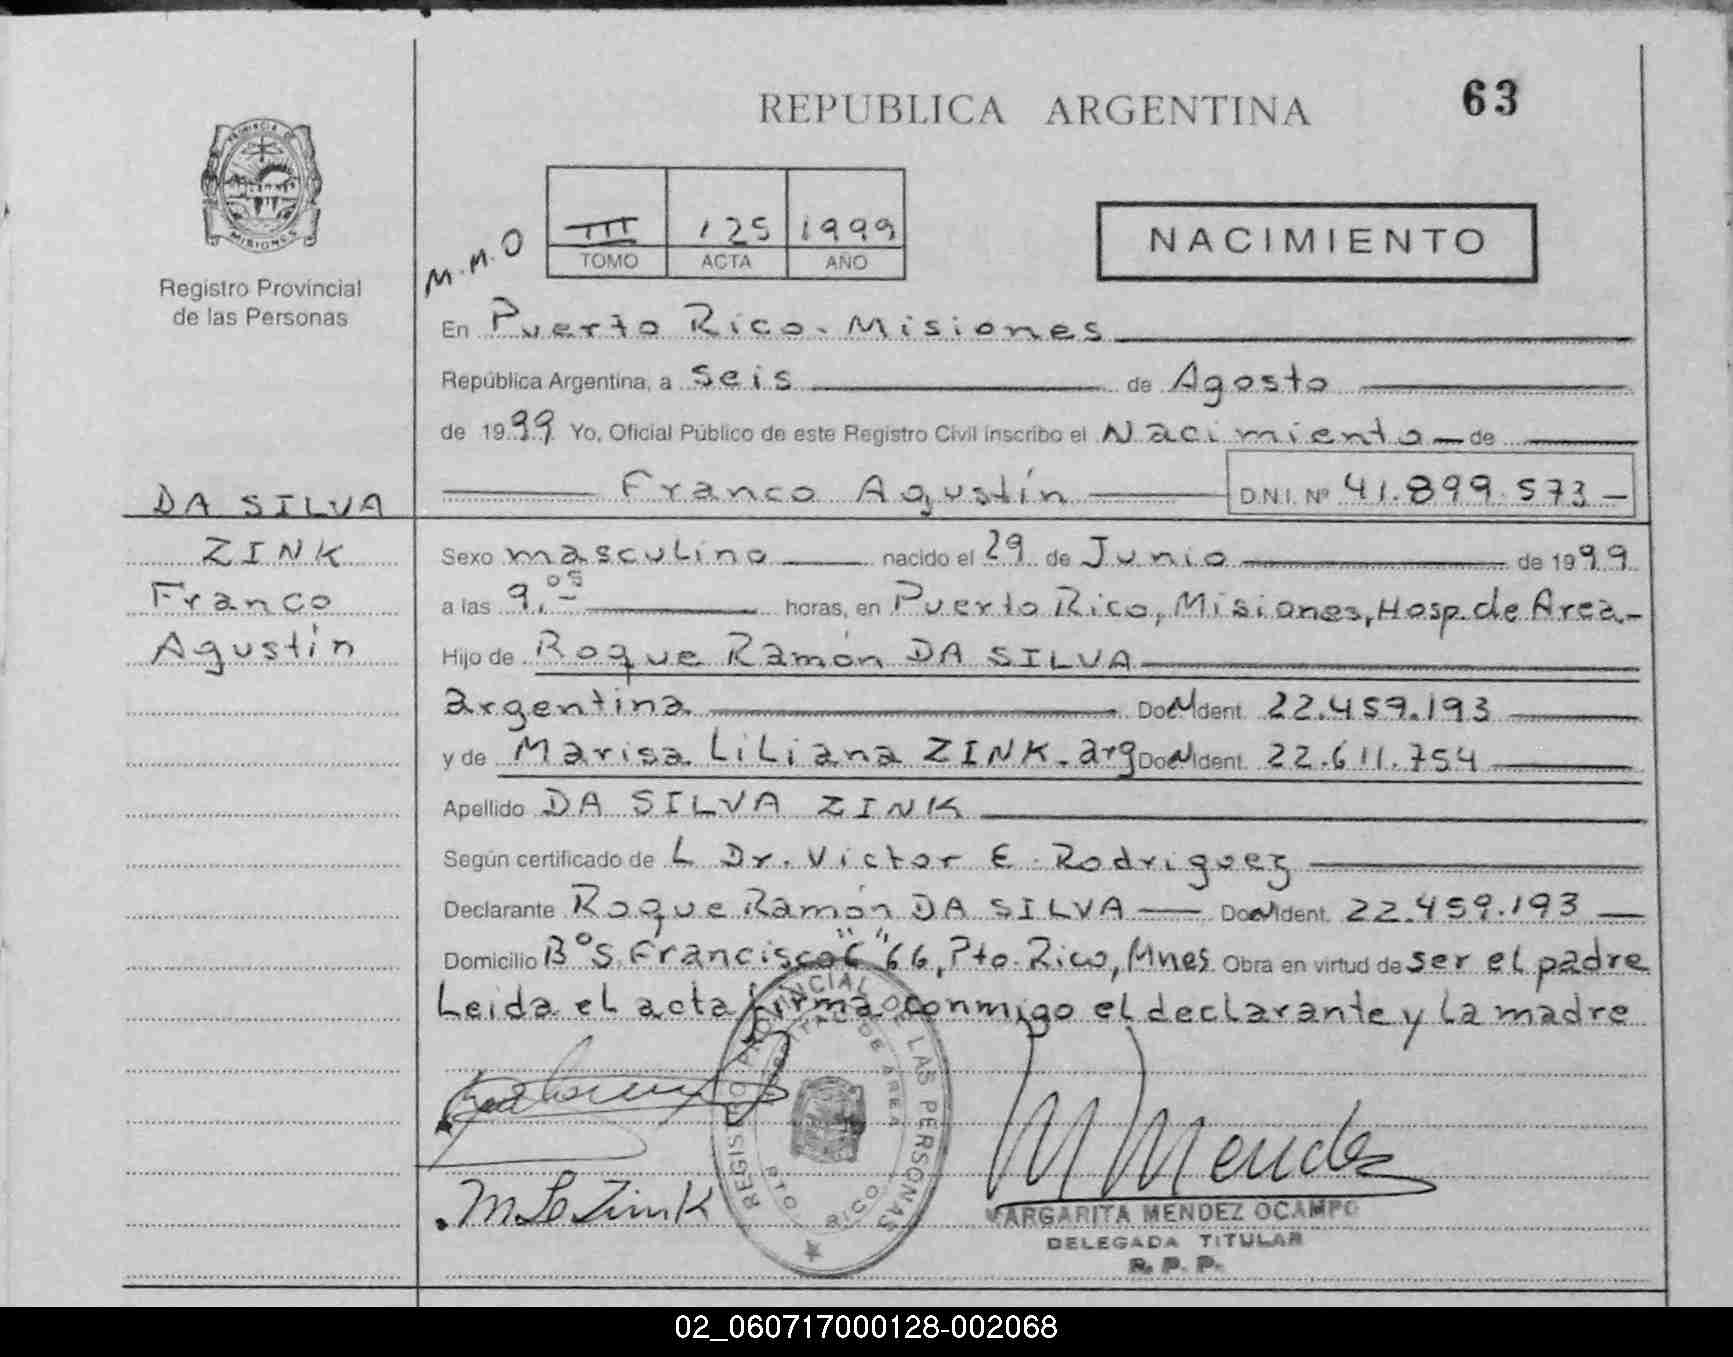 REPUBLICA ARGENTINA
63
PROVINCIA DE
MISIONES
Registro Provincial
de las Personas
M.M.O
III 125 1999
TOMO ACTA AÑO
NACIMIENTO
En Puerto Rico. Misiones
República Argentina, a seis de Agosto
de 1999 Yo, Oficial Público de este Registro Civil inscribo el Nacimiento de
Franco Agustín D.N.I. Nº 41.899.573
DA SILVA
ZINK
Franco
Agustín
Sexo masculino nacido el 29 de Junio de 1999
a las 9.05 horas, en Puerto Rico, Misiones, Hosp. de Area.
Hijo de Roque Ramón DA SILVA
argentina Doc. Ident. 22.459.193
y de Marisa Liliana ZINK. arg Doc. Ident. 22.611.754
Apellido DA SILVA ZINK
Según certificado de L Dr. Victor E. Rodriguez
Declarante Roque Ramón DA SILVA Doc. Ident. 22.459.193
Domicilio Bº S. Francisco "C" 66, Pto. Rico, Mnes. Obra en virtud de ser el padre
Leida el acta firma conmigo el declarante y la madre
REGISTRO PROVINCIAL DE LAS PERSONAS
HOSPITAL DE AREA
PTO. RICO
M L Zink
M Mendez
MARGARITA MENDEZ OCAMPO
DELEGADA TITULAR
R. P. P.
02_060717000128-002068